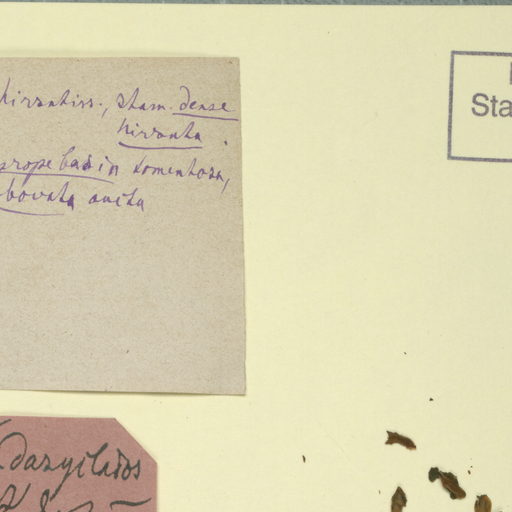 hirsutiss., stam. dense
hirsuta.
prope basin tomentosa,
obovata
dasyclados
Sta